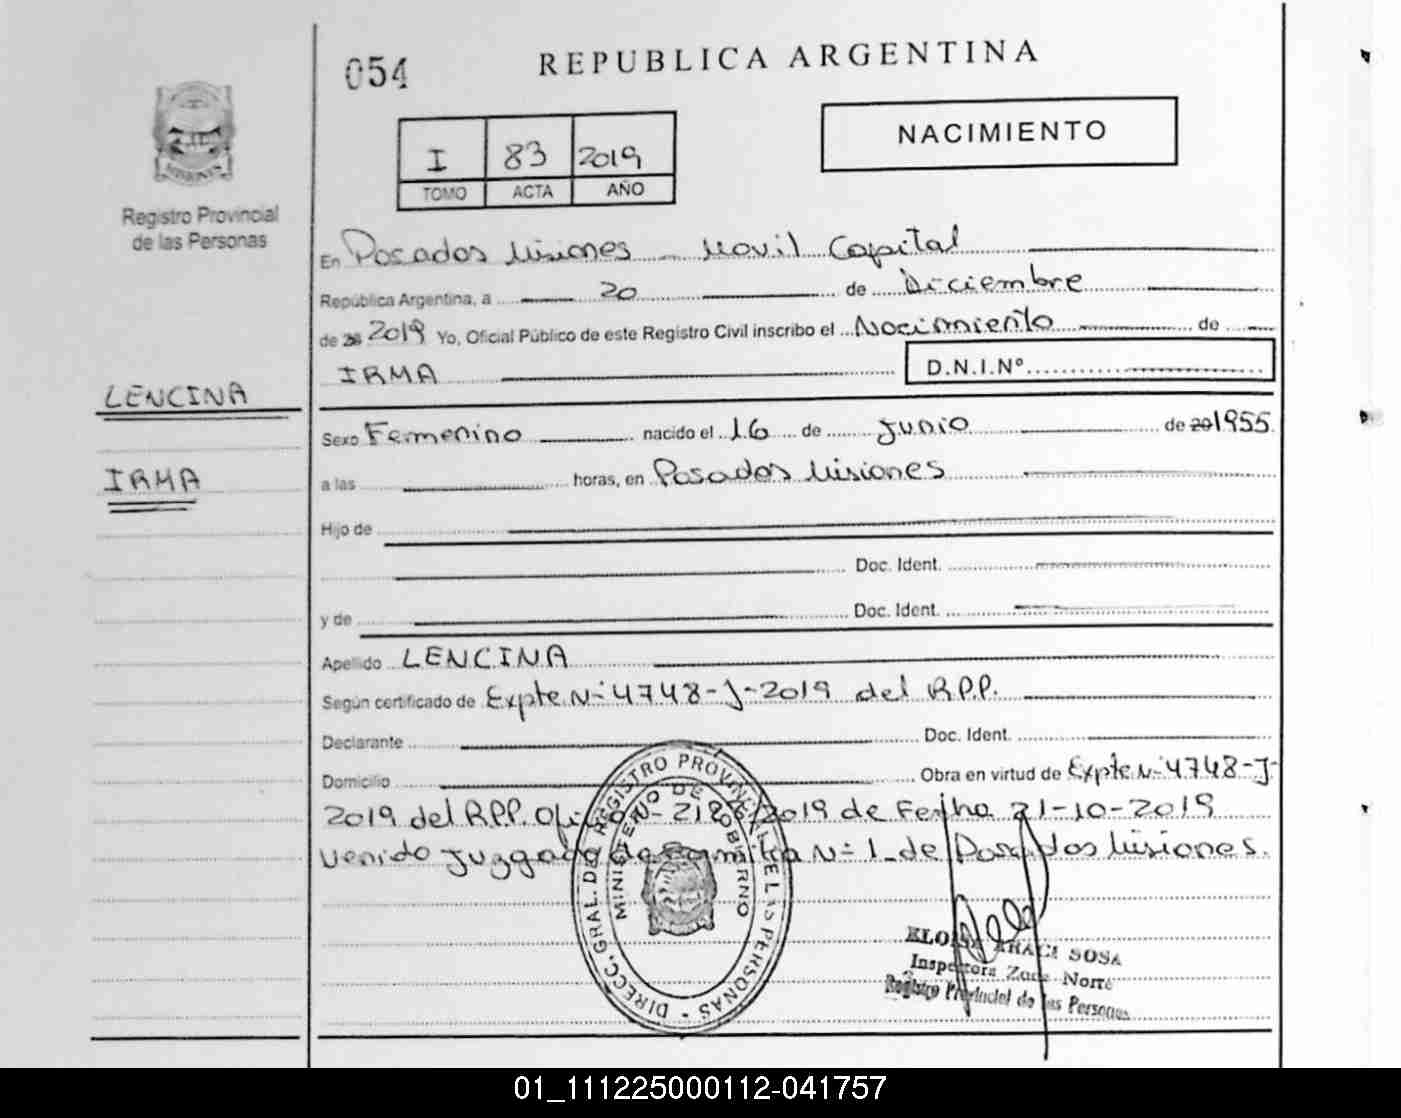 054
REPUBLICA ARGENTINA
I 83 2019
TOMO ACTA AÑO
NACIMIENTO
MISIONES
Registro Provincial
de las Personas
LENCINA
IRMA
En Posadas Misiones - Movil Capital
República Argentina, a 20 de Diciembre
de 20 2019 Yo, Oficial Público de este Registro Civil inscribo el Nacimiento de
IRMA D.N.I.Nº
Sexo Femenino nacido el 16 de Junio de 20 1955
a las horas, en Posadas Misiones
Hijo de
Doc. Ident.
y de Doc. Ident.
Apellido LENCINA
Según certificado de Expte Nº 4748-J-2019 del R.P.P.
Declarante Doc. Ident.
Domicilio Obra en virtud de Expte Nº 4748-J-
2019 del R.P.P. Oficio Nº /2019 de Fecha 21-10-2019
venido Juzgado de Familia Nº 1 de Posadas Misiones.
DIRECC. GRAL. DEL REGISTRO PROVINCIAL DE LAS PERSONAS
MINISTERIO DE GOBIERNO
ELOISA ARACI SOSA
Inspectora Zona Norte
Registro Provincial de las Personas
01_111225000112-041757